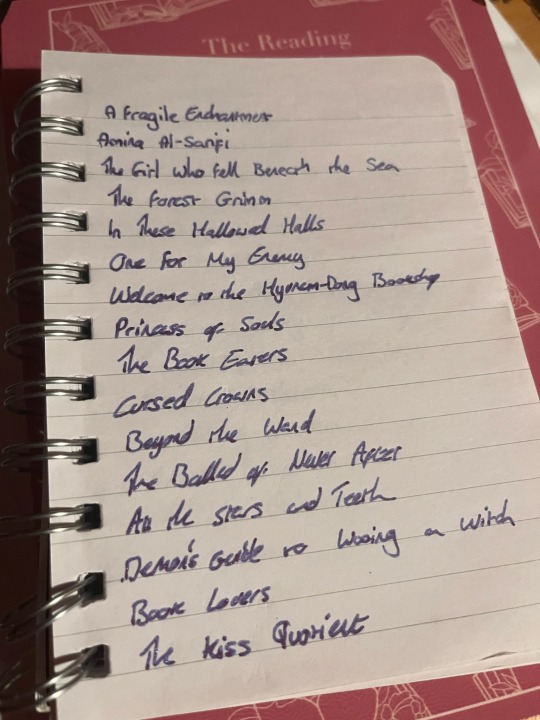 The Reading
A Fragile Enchantment
Amina Al-Sarifi
The Girl Who Fell Beneath the Sea
The Forest Grimm
In These Hallowed Halls
One For My Enemy
Welcome to the Hyunam-Dong Bookshop
Princess of Souls
The Book Eaters
Cursed Crowns
Beyond the Ward
The Ballad of Never After
All the Stars and Teeth
Demon's Guide to Wooing a Witch
Book Lovers
The Kiss Quotient